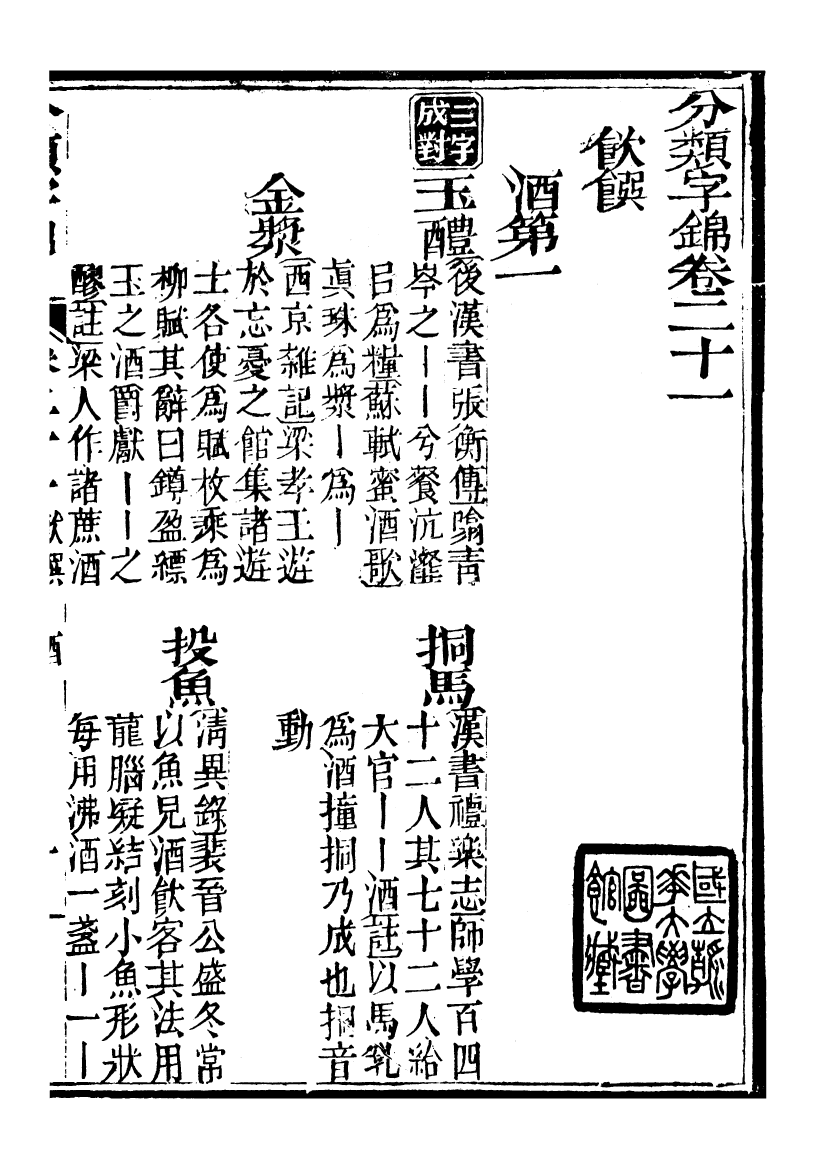 分類字錦卷二十一
飲饌
酒第一
三字成對
玉醴
後漢書張衡傳噏青
岑之丨丨兮餐沆瀣
㠯爲糧蘇軾蜜酒歌
眞珠爲漿丨爲丨
挏馬
漢書禮樂志師學百四
十二人其七十二人給
大官丨丨酒註以馬乳
爲酒撞挏乃成也挏音
動
金漿
西京雜記梁孝王遊
於忘憂之館集諸遊
士各使爲賦枚乘爲
柳賦其辭曰罇盈縹
玉之酒爵獻丨丨之
醪註梁人作諸蔗酒
投魚
淸異錄裴晉公盛冬常
以魚兒酒飲客其法用
龍腦凝結刻小魚形狀
每用沸酒一盞丨一丨
國立
大學
圖書
館藏